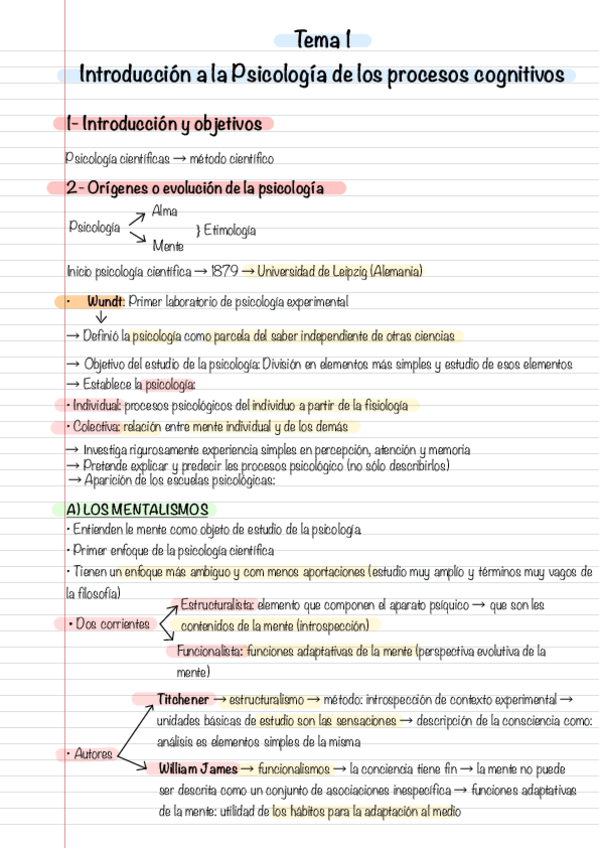 Tema 1
Introducción a la Psicología de los procesos cognitivos
1- Introducción y objetivos
Psicología científicas → método científico
2- Orígenes o evolución de la psicología
Alma
Psicología } Etimología
Mente
Inicio psicología científica → 1879 → Universidad de Leipzig (Alemania)
• Wundt: Primer laboratorio de psicología experimental
→ Definió la psicología como parcela del saber independiente de otras ciencias
→ Objetivo del estudio de la psicología: División en elementos más simples y estudio de esos elementos
→ Establece la psicología:
• Individual: procesos psicológicos del individuo a partir de la fisiología
• Colectiva: relación entre mente individual y de los demás
→ Investiga rigurosamente experiencia simples en percepción, atención y memoria
→ Pretende explicar y predecir les procesos psicológico (no sólo describirlos)
→ Aparición de los escuelas psicológicas:
A) LOS MENTALISMOS
• Entienden le mente como objeto de estudio de la psicología
• Primer enfoque de la psicología científica
• Tienen un enfoque más ambiguo y com menos aportaciones (estudio muy amplío y términos muy vagos de
la filosofía)
Estructuralista: elemento que componen el aparato psíquico → que son les
• Dos corrientes contenidos de la mente (introspección)
Funcionalista: funciones adaptativas de la mente (perspectiva evolutiva de la
mente)
Titchener → estructuralismo → método: introspección de contexto experimental →
unidades básicas de estudio son las sensaciones → descripción de la consciencia como:
análisis es elementos simples de la misma
• Autores
William James → funcionalismos → la conciencia tiene fin → la mente no puede
ser descrita como un conjunto de asociaciones inespecífica → funciones adaptativas
de la mente: utilidad de los hábitos para la adaptación al medio